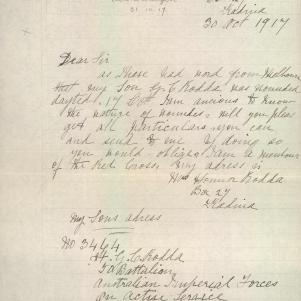 31.10.17
Kadina
30 Oct 1917
Dear Sir
as I have had word from Melbourne
that my Son G. C Rodda was wounded
dayted 17 Oct I am ancious to know
the nature of wounds. will you please
get all particulars you can
and send to me by doing so
you would oblige I am a member
of the Red Cross my adress is
Mrs Honnor Rodda
Box 27
Kadina
my Sons adress
No 3464
G. C Rodda
50 Battalion
Australian Imperial Forces
on Active Service